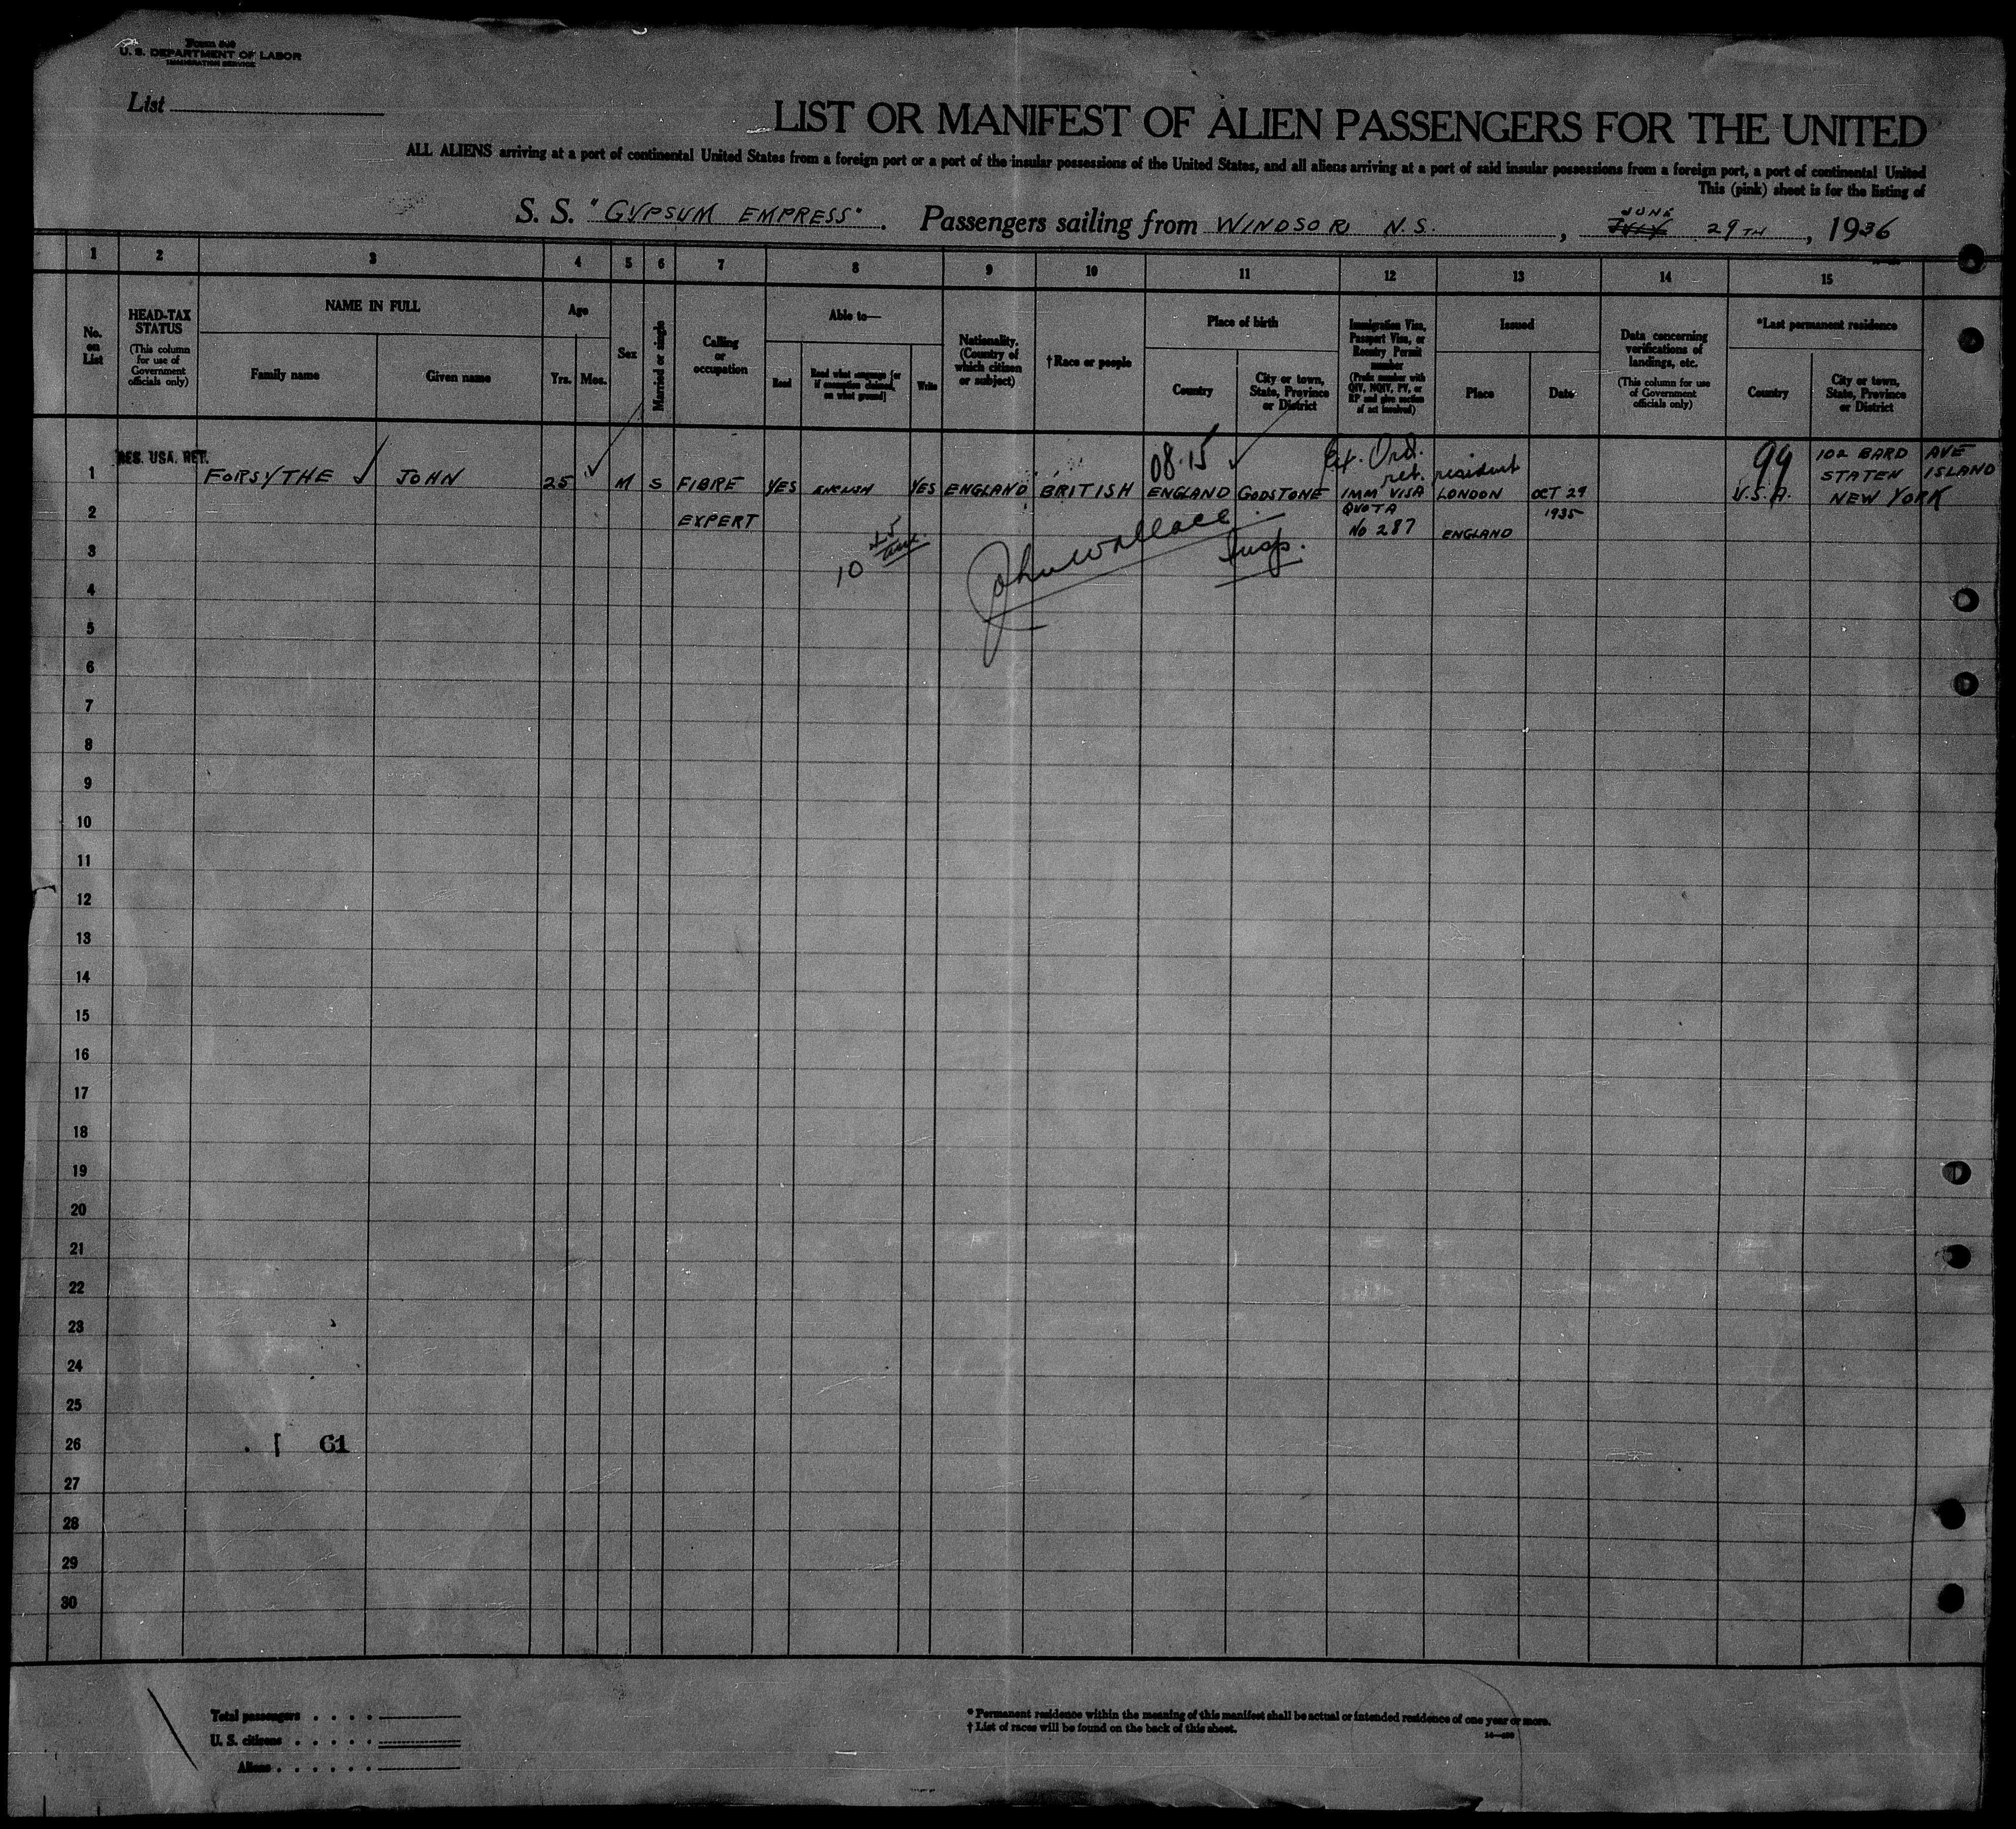 Form 500
U. S. DEPARTMENT OF LABOR
IMMIGRATION SERVICE
List
LIST OR MANIFEST OF ALIEN PASSENGERS FOR THE UNITED
ALL ALIENS arriving at a port of continental United States from a foreign port or a port of the insular possessions of the United States, and all aliens arriving at a port of said insular possessions from a foreign port, a port of continental United
This (pink) sheet is for the listing of
S. S. "GYPSUM EMPRESS". Passengers sailing from WINDSOR N. S. , JULY JUNE 29TH , 1936
1 2 3 4 5 6 7 8 9 10 11 12 13 14 15
No. on List
HEAD-TAX STATUS
(This column for use of Government officials only)
NAME IN FULL
Family name
Given name
Age
Yrs.
Mos.
Sex
Married or single
Calling or occupation
Able to—
Read
Read what language [or if exemption claimed, on what ground]
Write
Nationality. (Country of which citizen or subject)
†Race or people
Place of birth
Country
City or town, State, Province or District
Immigration Visa, Passport Visa, or Reentry Permit number
(Prefix number with QIV, NQIV, PV, or RP and give section of act involved)
Issued
Place
Date
Data concerning verifications of landings, etc.
(This column for use of Government officials only)
*Last permanent residence
Country
City or town, State, Province or District
RES. USA. RET.
08.15 Ex. Ord. ret. resident 99
1 FORSYTHE JOHN 25 M S FIBRE YES ENGLISH YES ENGLAND BRITISH ENGLAND GODSTONE IMM VISA LONDON OCT 29 U.S.A. 102 BARD AVE
STATEN ISLAND
NEW YORK
2 EXPERT QUOTA 1935
No 287 ENGLAND
3 10 45 am John Wallace Insp.
4
5
6
7
8
9
10
11
12
13
14
15
16
17
18
19
20
21
22
23
24
25
26 61
27
28
29
30
Total passengers
U. S. citizens
Aliens
* Permanent residence within the meaning of this manifest shall be actual or intended residence of one year or more.
† List of races will be found on the back of this sheet.